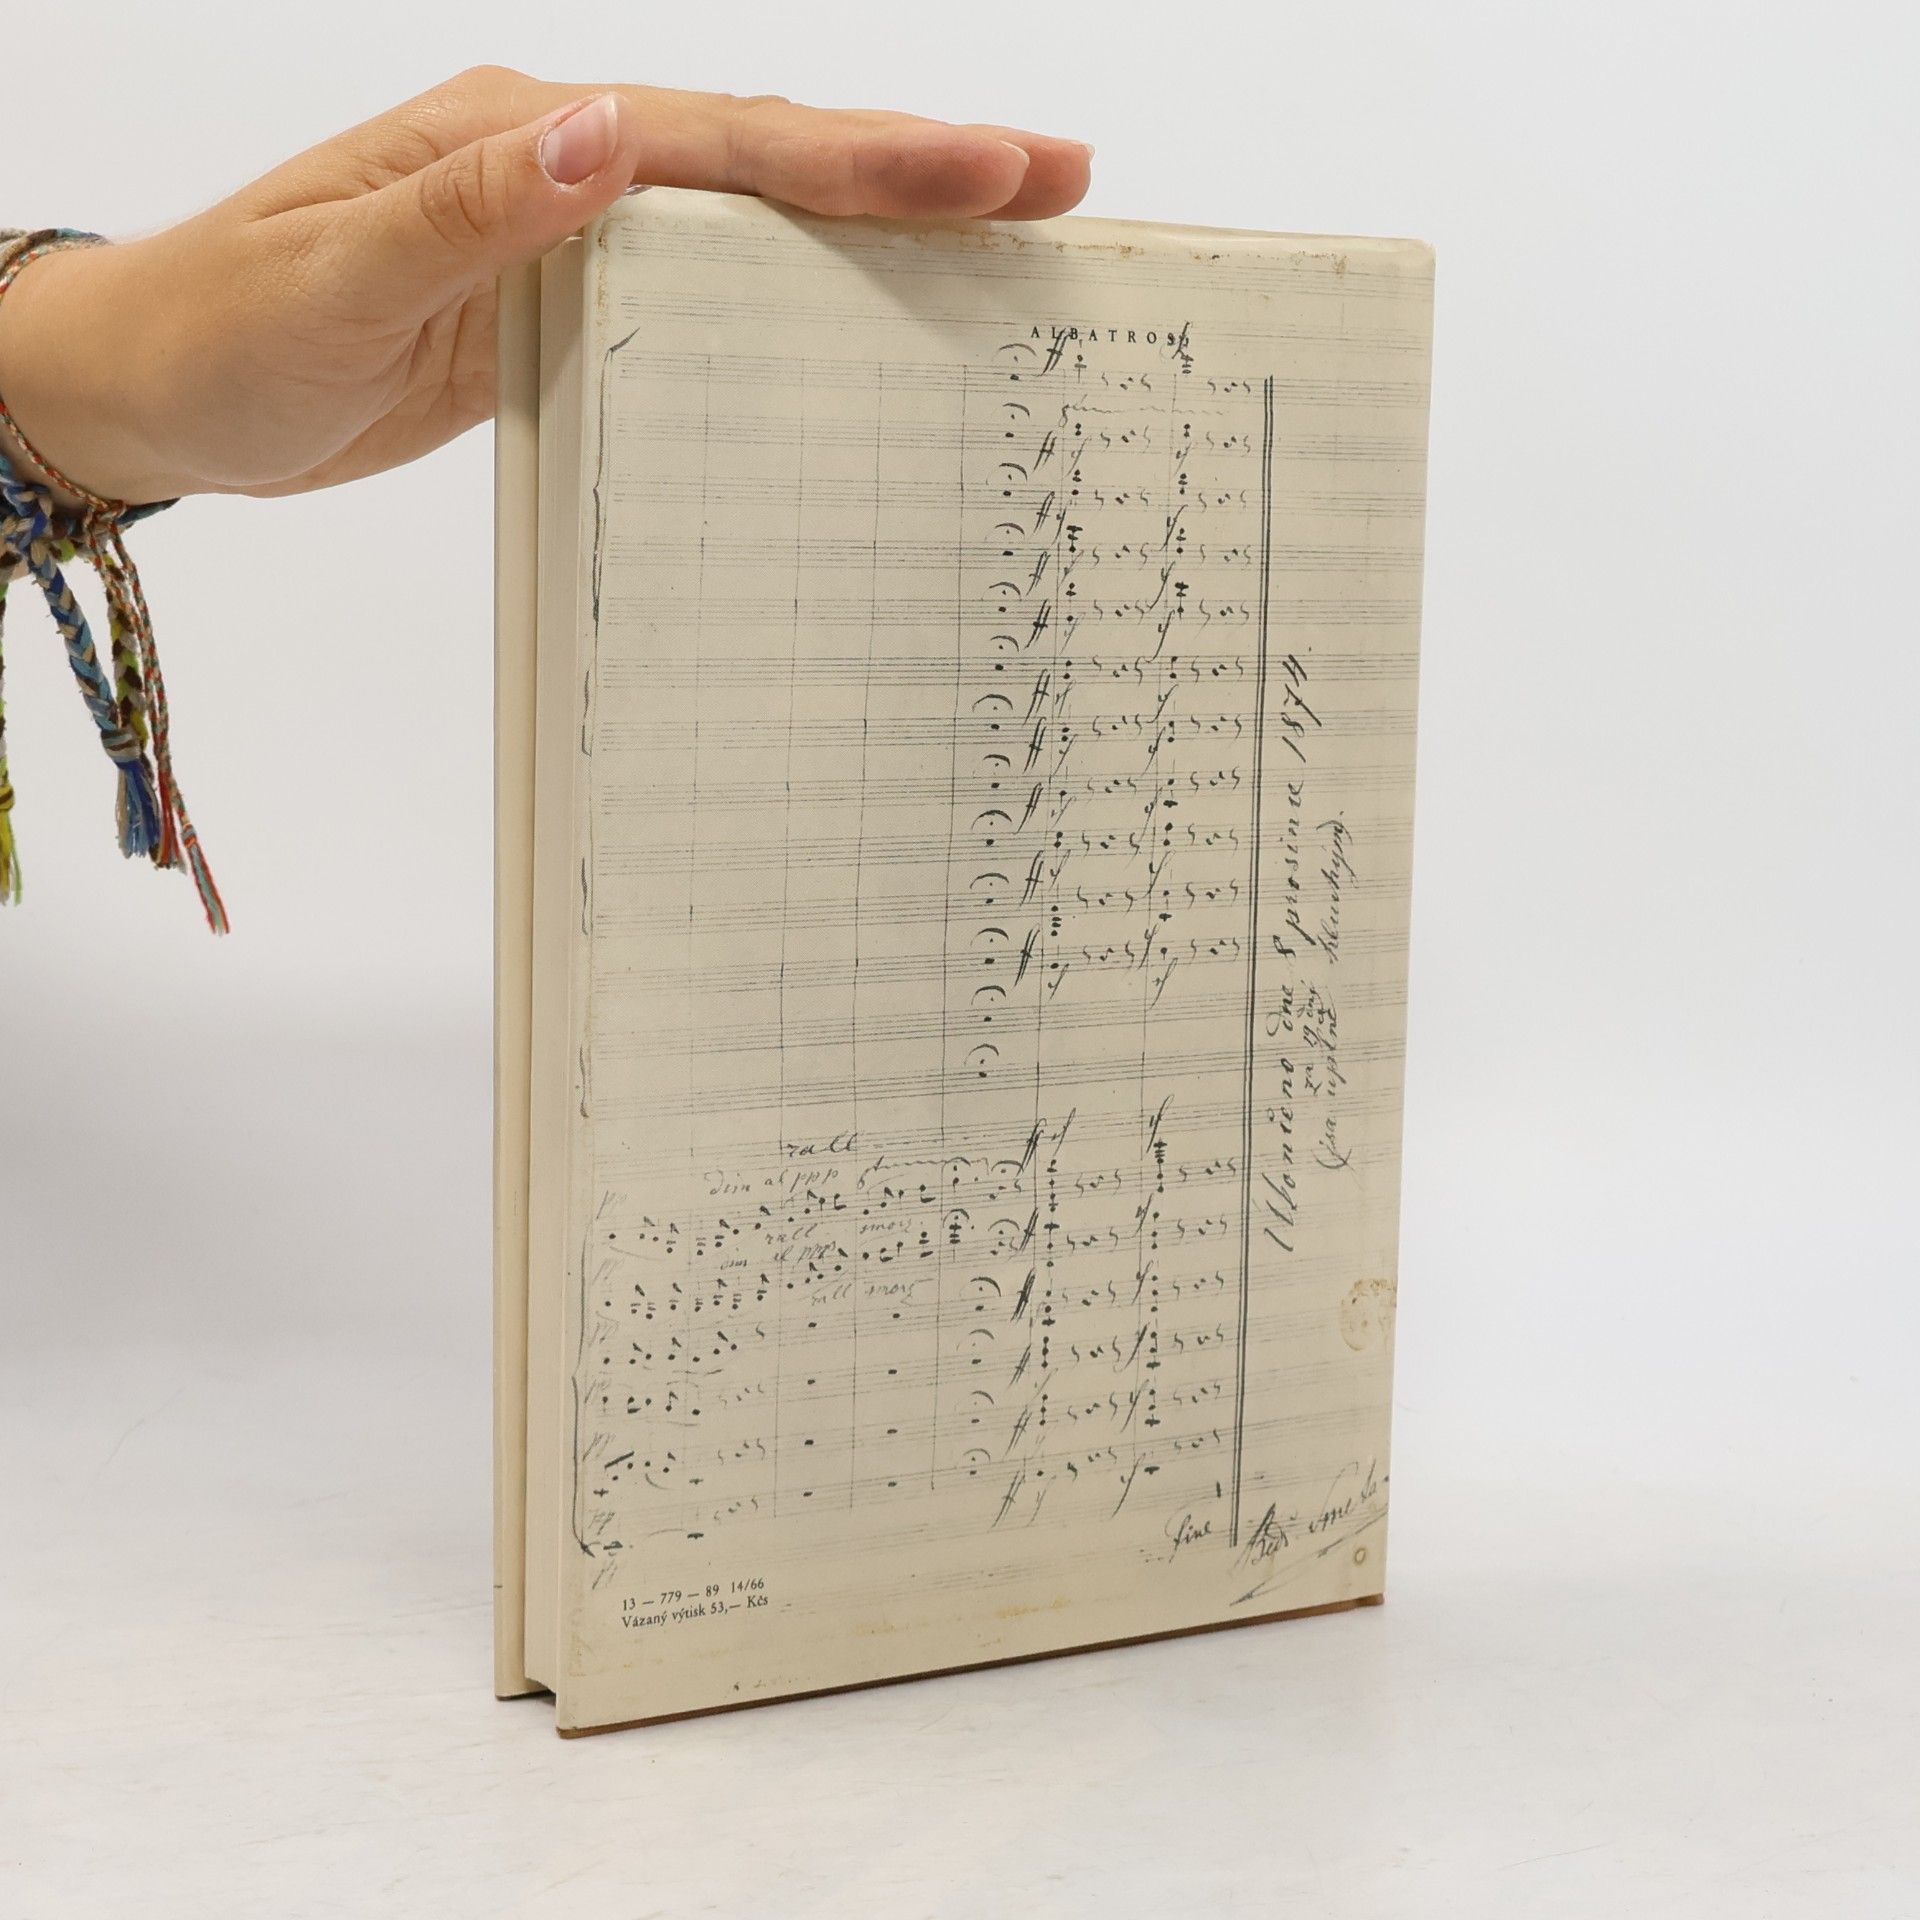 ALBATROS
rall
dim al ppp
rall
dim al ppp
rall
Ukončeno dne 8 prosince 1874
za 19 dní
Jsa úplně hluchým.
Fine
Bedř Smetana
13 — 779 — 89 14/66
Vázaný výtisk 53,— Kčs